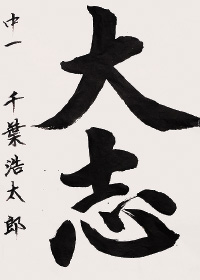 大志
中一 千葉浩太郎